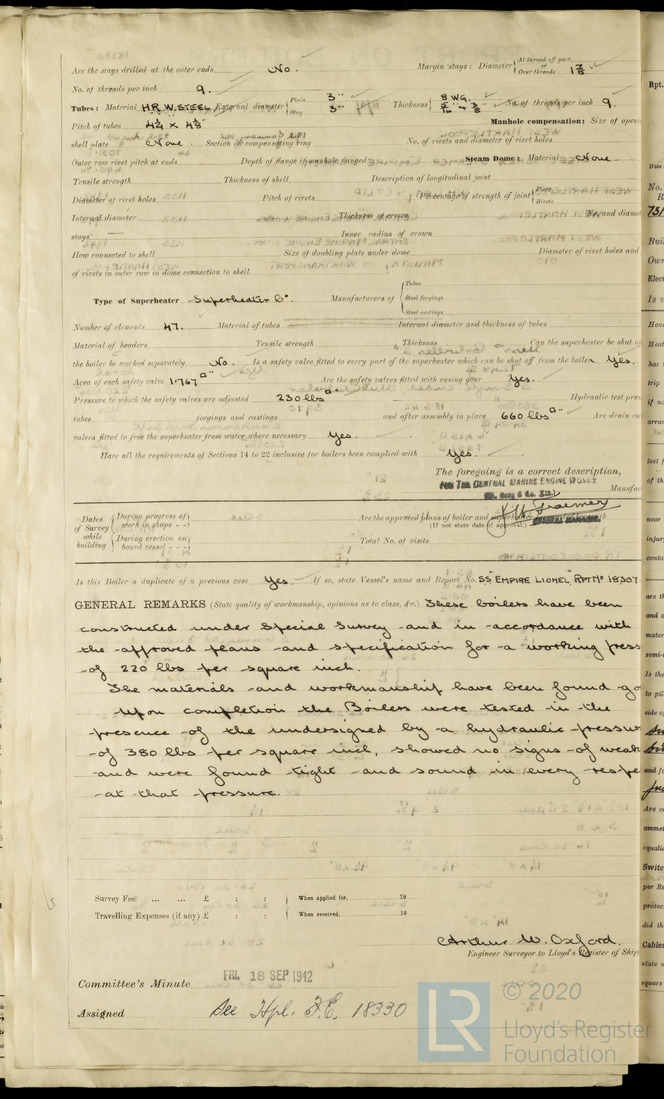 Are the stays drilled at the outer ends No. Margin stays: Diameter { At turned off part, or Over threads 1 7/8
No. of threads per inch 9.
Tubes: Material H.R.W. STEEL External diameter { Plain 3" Stay 3" Thickness { 8 WG. No. of threads per inch 9.
Pitch of tubes 4 1/4 × 4 1/8" Manhole compensation: Size of open
shell plate None. Section of compensating ring No. of rivets and diameter of rivet holes
Outer row rivet pitch at ends Depth of flange if manhole flanged Steam Dome: Material None.
Tensile strength Thickness of shell Description of longitudinal joint
Diameter of rivet holes Pitch of rivets Percentage of strength of joint { Plate Rivets
Internal diameter Thickness of crown No. and diame
stays Inner radius of crown
How connected to shell Size of doubling plate under dome Diameter of rivet holes and
of rivets in outer row in dome connection to shell
Type of Superheater Superheater Co. Manufacturers of { Tubes Steel forgings Steel castings
Number of elements 47. Material of tubes Internal diameter and thickness of tubes
Material of headers Tensile strength Thickness Can the superheater be shut of
the boiler be worked separately No. Is a safety valve fitted to every part of the superheater which can be shut off from the boiler Yes.
Area of each safety valve 1.767 □" Are the safety valves fitted with easing gear Yes.
Pressure to which the safety valves are adjusted 230 lbs □" Hydraulic test pres
tubes forgings and castings and after assembly in place 660 lbs □" Are drain co
valves fitted to free the superheater from water where necessary Yes.
Have all the requirements of Sections 14 to 22 inclusive for boilers been complied with Yes.
The foregoing is a correct description,
FOR THE CENTRAL MARINE ENGINE WORKS
Manufac
Dates of Survey while building { During progress of work in shops - - During erection on board vessel - - - Are the approved plans of boiler and superheater forwarded herewith
(If not state date of approval.)
Total No. of visits
Is this Boiler a duplicate of a previous case Yes. If so, state Vessel's name and Report No. SS "EMPIRE LIONEL", RPT No 18307
GENERAL REMARKS (State quality of workmanship, opinions as to class, &c.) These boilers have been
constructed under Special Survey and in accordance with
the approved plans and specification for a working press
of 220 lbs per square inch.
The materials and workmanship have been found go
Upon completion the Boilers were tested in the
presence of the undersigned by a hydraulic pressur
of 380 lbs per square inch, showed no signs of weak
and were found tight and sound in every respe
at that pressure.
Survey Fee ... ... £ : : When applied for, 19
Travelling Expenses (if any) £ : : When received, 19
Arthur W. Oxford.
Engineer Surveyor to Lloyd's Register of Ship
Committee's Minute FRI. 18 SEP 1942
Assigned See Hpl. F.E. 18330
LR © 2020
Lloyd's Register
Foundation